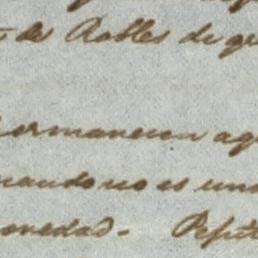 de Robles de gr
ermanecen aq
uando no es una
ovedad. Pepit